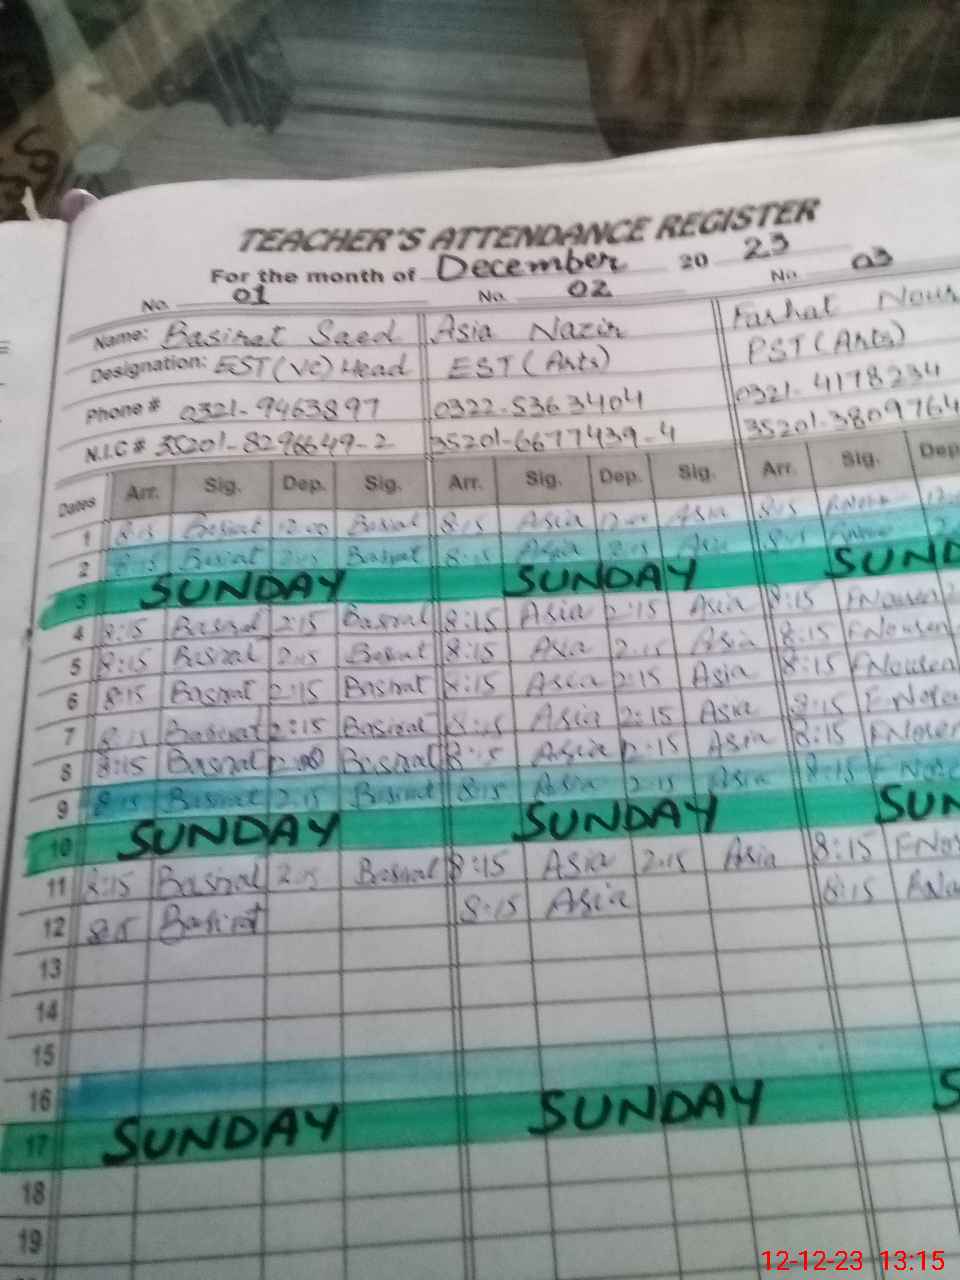 TEACHER'S ATTENDANCE REGISTER
For the month of December 2023
No. 01 No. 02 No. 03
Name: Basirat Saed Asia Nazir Farhat
Designation: EST (VC) Head EST (Arts) PST (Arts)
Phone # 0321-9463897 0322-5363404 0321-4178234
N.I.C # 35201-8296649-2 35201-6677439-4 35201-3809764
Dates Arr. Sig. Dep. Sig. Arr. Sig. Dep. Sig. Arr. Sig. Dep
1 8:15 Basirat 12:00 Basirat 8:15 Asia 12:00 Asia 8:15
2 8:15 Basirat 2:15 Basirat 8:15 Asia 2:15 Asia 8:15
3 SUNDAY SUNDAY SUND
4 8:15 Basirat 2:15 Basirat 8:15 Asia 2:15 Asia 8:15
5 8:15 Basirat 2:15 Basirat 8:15 Asia 2:15 Asia 8:15
6 8:15 Basirat 2:15 Basirat 8:15 Asia 2:15 Asia 8:15
7 8:15 Basirat 2:15 Basirat 8:15 Asia 2:15 Asia 8:15
8 8:15 Basirat 2:00 Basirat 8:15 Asia 2:15 Asia 8:15
9 8:15 Basirat 2:15 Basirat 8:15 Asia 2:15 Asia 8:15
10 SUNDAY SUNDAY SUN
11 8:15 Basirat 2:15 Basirat 8:15 Asia 2:15 Asia 8:15
12 8:15 Basirat 8:15 Asia 8:15
13
14
15
16
17 SUNDAY SUNDAY S
18
19
12-12-23 13:15